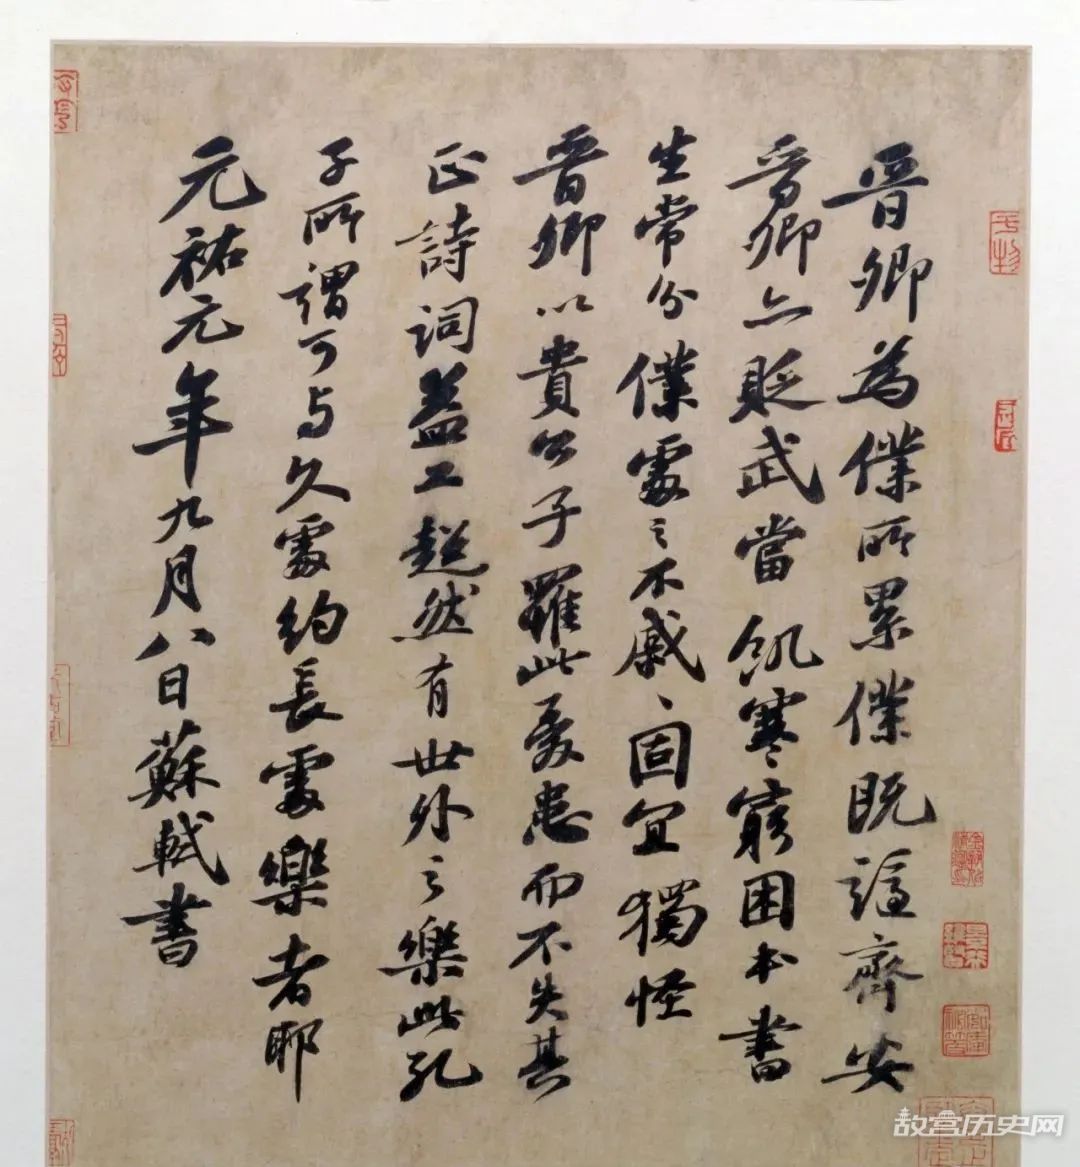 晉卿為僕所累僕既謫齊安
晉卿亦貶武當飢寒窮困本書
生常分僕處之不戚戚固宜獨怪
晉卿以貴公子罹此憂患而不失其
正詩詞益工超然有世外之樂此孔
子所謂可与久處約長處樂者耶
元祐元年九月八日蘇軾書
故宫历史网